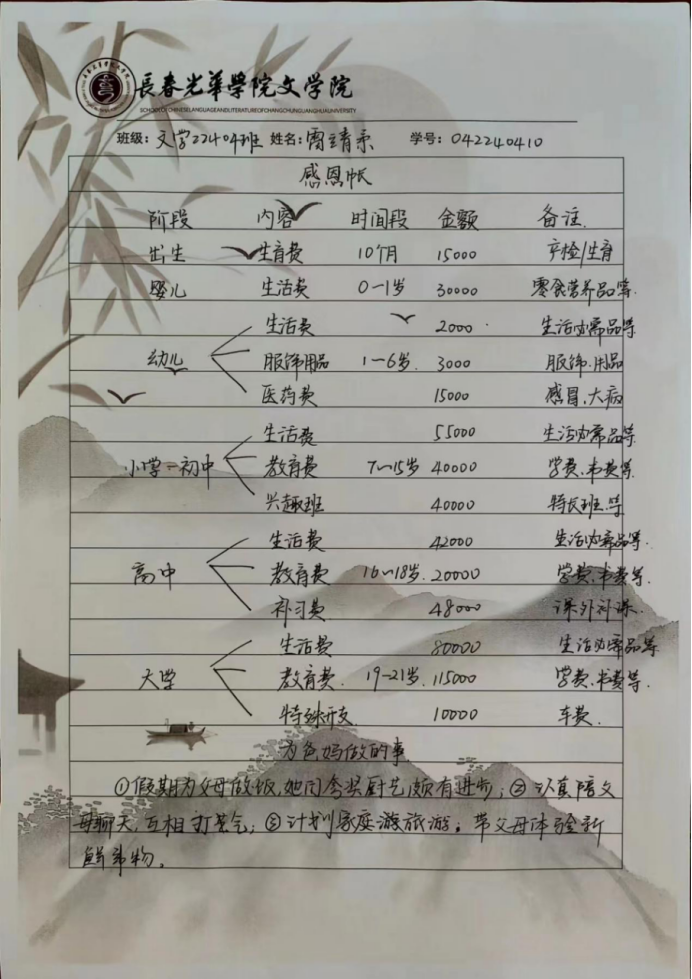 長春光華學院文学院
SCHOOL OF CHINESE LANGUAGE AND LITERATURE OF CHANGCHUN GUANGHUA UNIVERSITY
班级：文学22404班 姓名：雷靖柔 学号：042240410
感恩帐
阶段 内容 时间段 金额 备注
出生 生育费 10个月 15000 产检/生育
婴儿 生活费 0-1岁 30000 零食营养品等
生活费 2000 生活必需品等
幼儿 服饰用品 1-6岁 3000 服饰、用品
医药费 15000 感冒、大病
生活费 55000 生活必需品等
小学-初中 教育费 7-15岁 40000 学费、书费等
兴趣班 40000 特长班等
生活费 42000 生活必需品等
高中 教育费 16-18岁 20000 学费、书费等
补习费 48000 课外补课
生活费 80000 生活必需品等
大学 教育费 19-21岁 115000 学费、书费等
特殊开支 10000 车费
为爸妈做的事
①假期为父母做饭,她们夸奖厨艺颇有进步;②认真陪父
母聊天,互相打芯气;③计划家庭游旅游,带父母体验新
鲜事物。